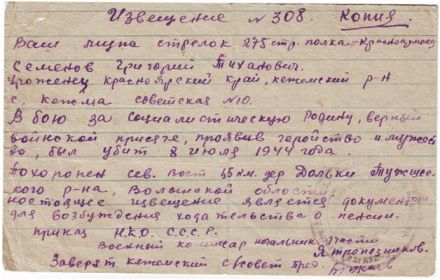 Извещение № 308. Копия
Ваш муж стрелок 275 стр. полка красноармеец
Семенов Григорий Тиханович.
Уроженец Красноярский край, Кежемский р-н
с. Кежма Советская №10.
В бою за Социалистическую Родину, верный
воинской присяге, проявив геройство и мужест
во, был убит 8 июля 1944 года.
Похоронен сев. вост 1,5 км. дер Дольки
кого р-на, Волынской области
настоящее извещение является документом
для возбуждения ходательства о пенсии.
приказ Н.К.О. С.С.С.Р.
Военный комисар начальник части
Ятропезников.
Заверят Кежемский с/совет Пред